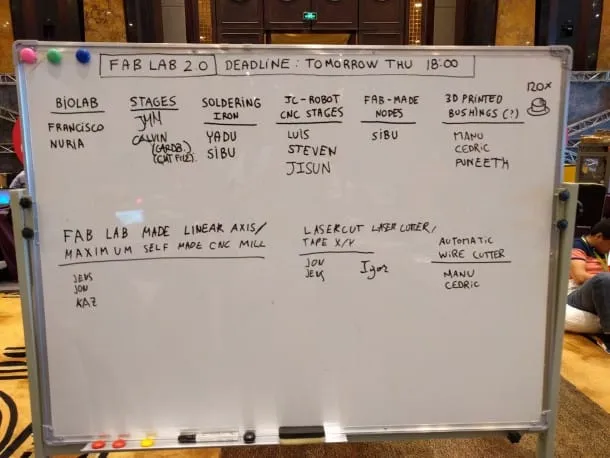 FAB LAB 2.0 DEADLINE: TOMORROW THU 18:00
120x
BIOLAB
FRANCISCO
NURIA
STAGES
JMN
CALVIN
(CARDB.)
SOLDERING
IRON
YADU
SIBU
JC-ROBOT
CNC STAGES
LUIS
STEVEN
JISUN
FAB-MADE
NODES
SIBU
3D PRINTED
BUSHINGS (?)
MANU
CEDRIC
PUNEETH
FAB LAB MADE LINEAR AXIS/
MAXIMUM SELF MADE CNC MILL
JENS
JON
KAZ
LASERCUT LASER CUTTER/
TAPE X/Y
JON
JENS
Igor
AUTOMATIC
WIRE CUTTER
MANU
CEDRIC